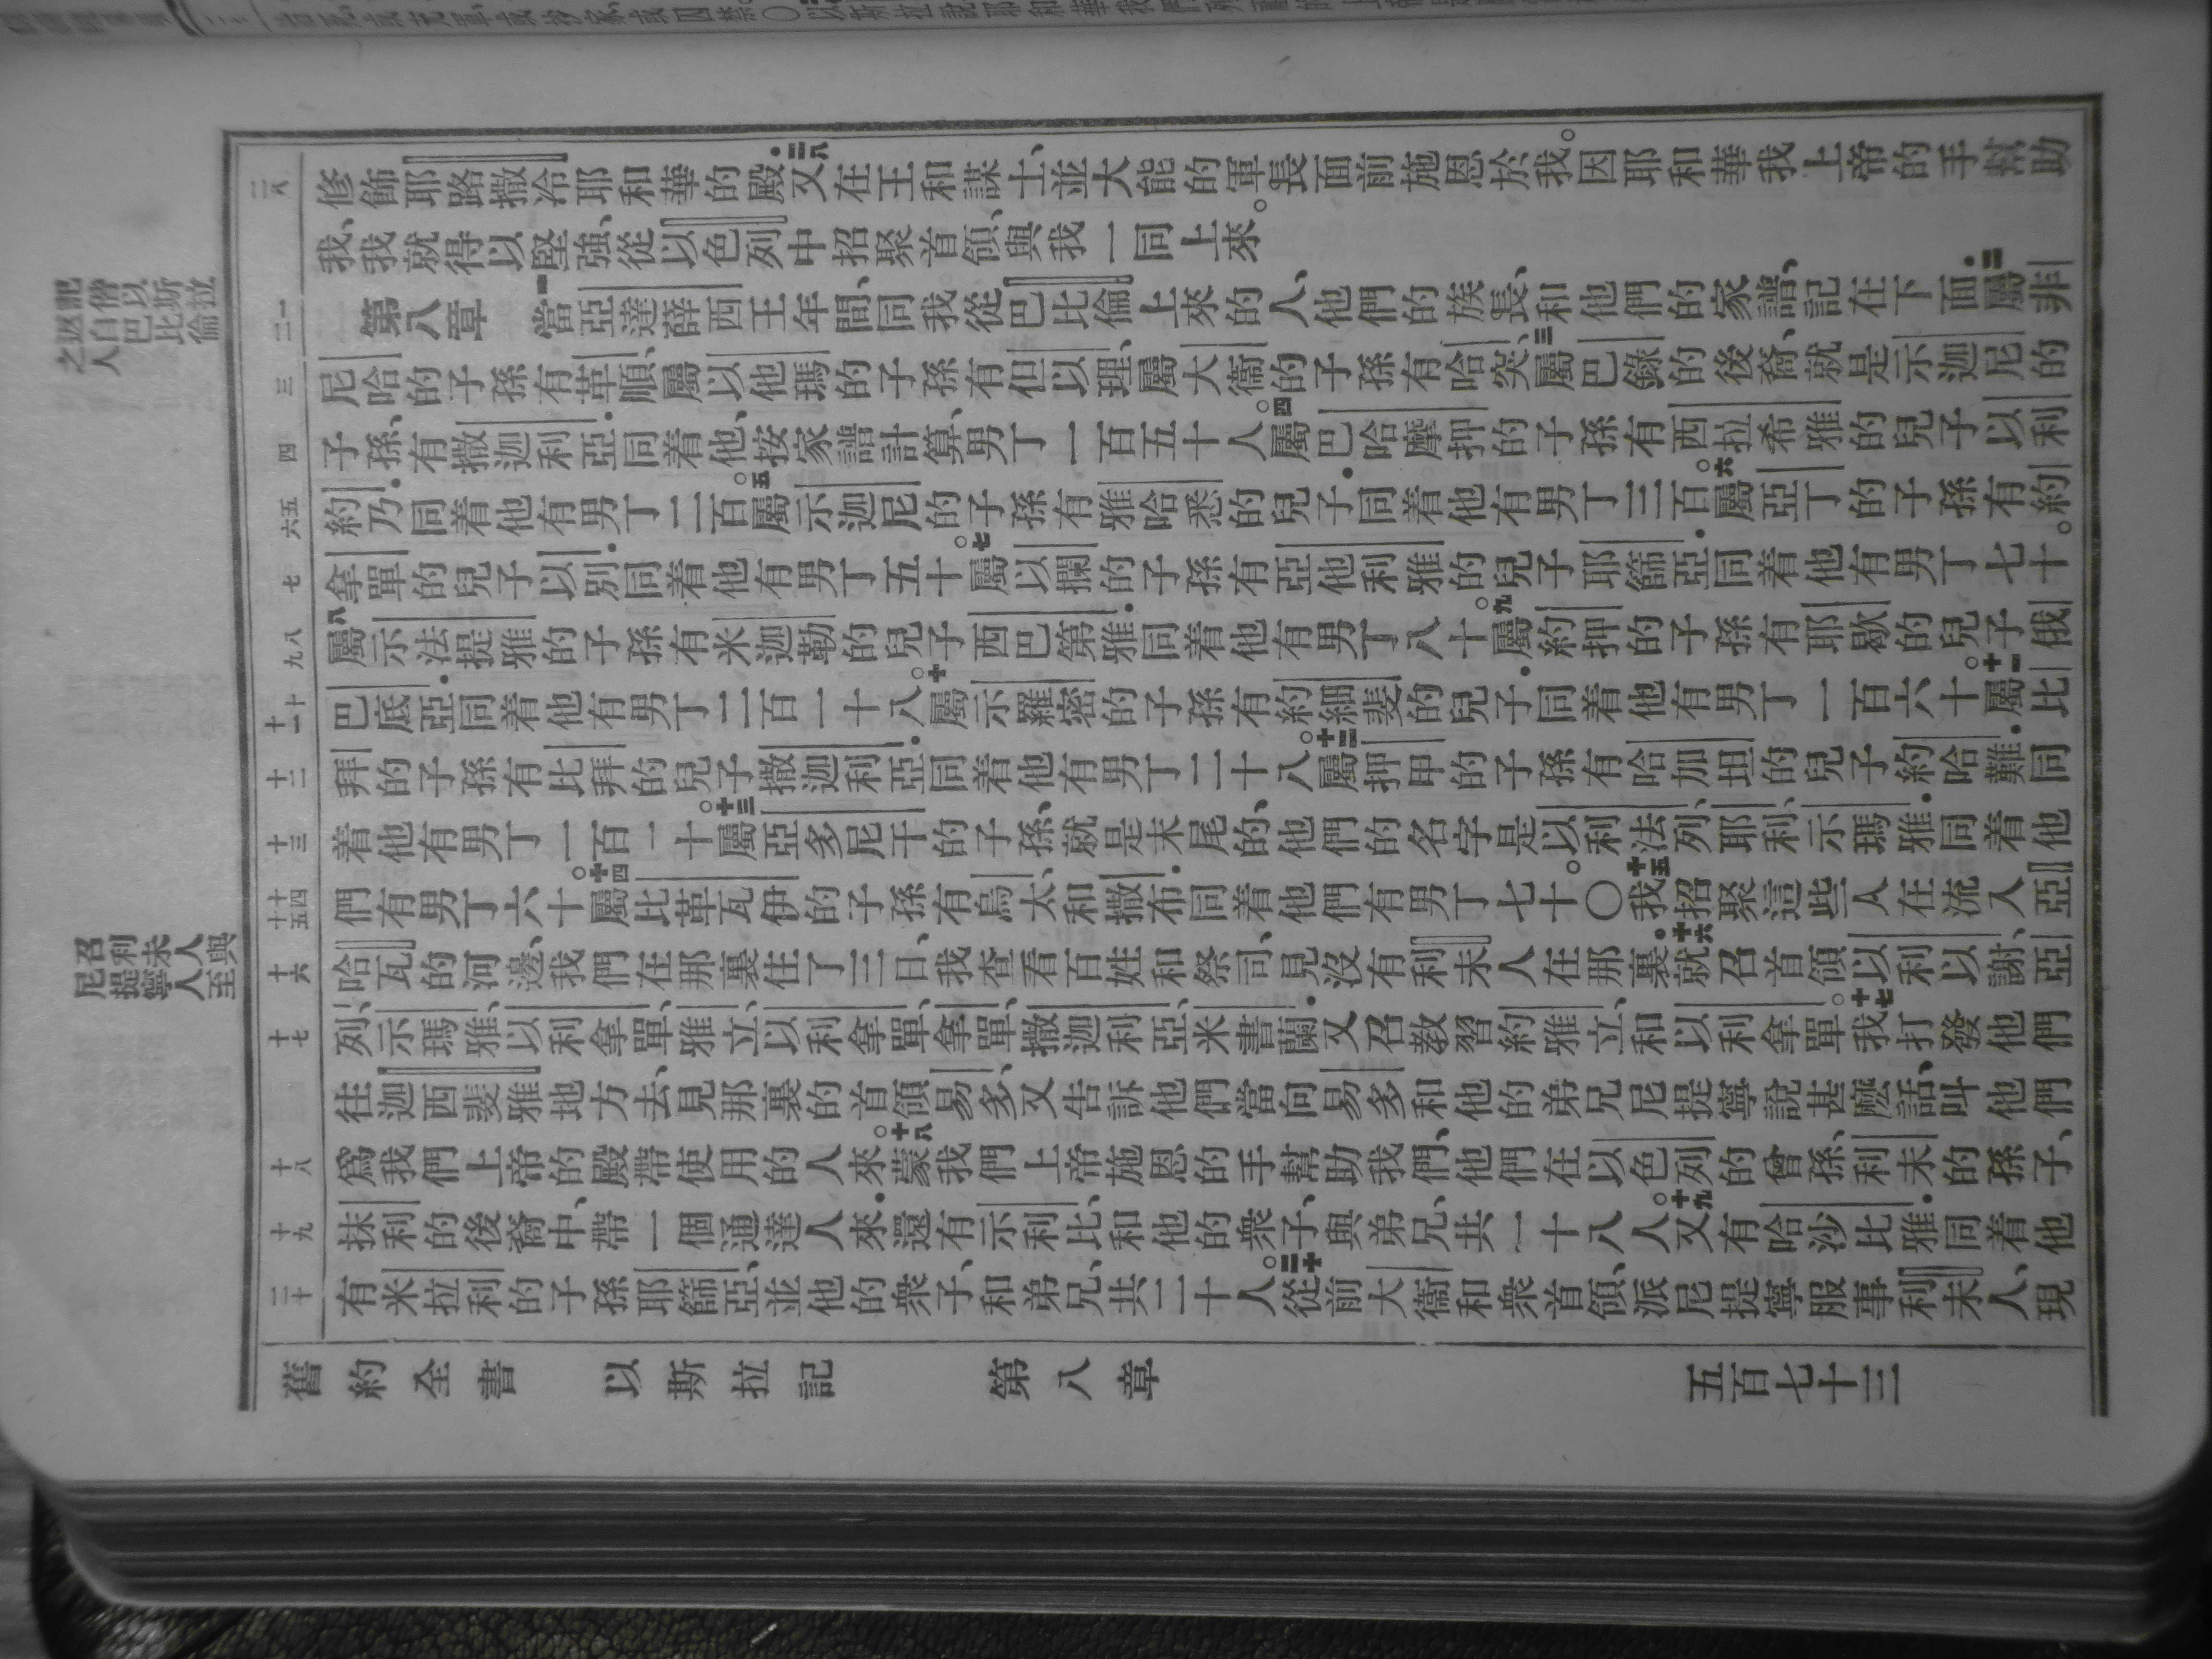 修飾耶路撒冷耶和華的殿．二八又在王和謀士、並大能的軍長面前施恩於我。因耶和華我上帝的手幫助
我、我就得以堅強、從以色列中招聚首領、與我一同上來。
第八章 一當亞達薛西王年間、同我從巴比倫上來的人、他們的族長、和他們的家譜、記在下面．二屬非
尼哈的子孫有革順、屬以他瑪的子孫有但以理、屬大衞的子孫有哈突、三屬巴錄的後裔、就是示迦尼的
子孫、有撒迦利亞．同着他、按家譜計算、男丁一百五十人。四屬巴哈摩押的子孫有西拉希雅的兒子以利
約乃．同着他有男丁二百。五屬示迦尼的子孫有雅哈悉的兒子．同着他有男丁三百。六屬亞丁的子孫有約
拿單的兒子以別．同着他有男丁五十。七屬以攔的子孫有亞他利雅的兒子耶篩亞．同着他有男丁七十。
八屬示法提雅的子孫有米迦勒的兒子西巴第雅．同着他有男丁八十。九屬約押的子孫有耶歇的兒子俄
巴底亞．同着他有男丁二百一十八。十屬示羅密的子孫有約細斐的兒子．同着他有男丁一百六十。十一屬比
拜的子孫有比拜的兒子撒迦利亞．同着他有男丁二十八。十二屬押甲的子孫有哈加坦的兒子約哈難．同
着他有男丁一百一十。十三屬亞多尼干的子孫、就是末尾的、他們的名字是以利法列、耶利、示瑪雅．同着他
們有男丁六十。十四屬比革瓦伊的子孫有烏太、和撒布．同着他們有男丁七十。〇十五我招聚這些人在流入亞
哈瓦的河邊、我們在那裏住了三日、我查看百姓和祭司、見沒有利未人在那裏。十六就召首領以利以謝、亞
列、示瑪雅、以利拿單、雅立、以利拿單、拿單、撒迦利亞、米書蘭．又召教習約雅立、和以利拿單。十七我打發他們
往迦西斐雅地方去、見那裏的首領易多、又告訴他們當向易多和他的弟兄尼提寧說甚麼話、叫他們
爲我們上帝的殿帶使用的人來。十八蒙我們上帝施恩的手幫助我們、他們在以色列的曾孫、利未的孫子、
抹利的後裔中、帶一個通達人來．還有示利比、和他的衆子、與弟兄、共一十八人。十九又有哈沙比雅．同着他
有米拉利的子孫耶篩亞、並他的衆子、和弟兄、共二十人。二十從前大衞和衆首領、派尼提寧服事利未人、現
舊約全書 以斯拉記 第八章 五百七十三
二八
一
二
三
四
五
六
七
八
九
十
十一
十二
十三
十四
十五
十六
十七
十八
十九
二十
記以斯拉
偕以巴比倫
返自巴
之人
召利未人與
尼提寧人至